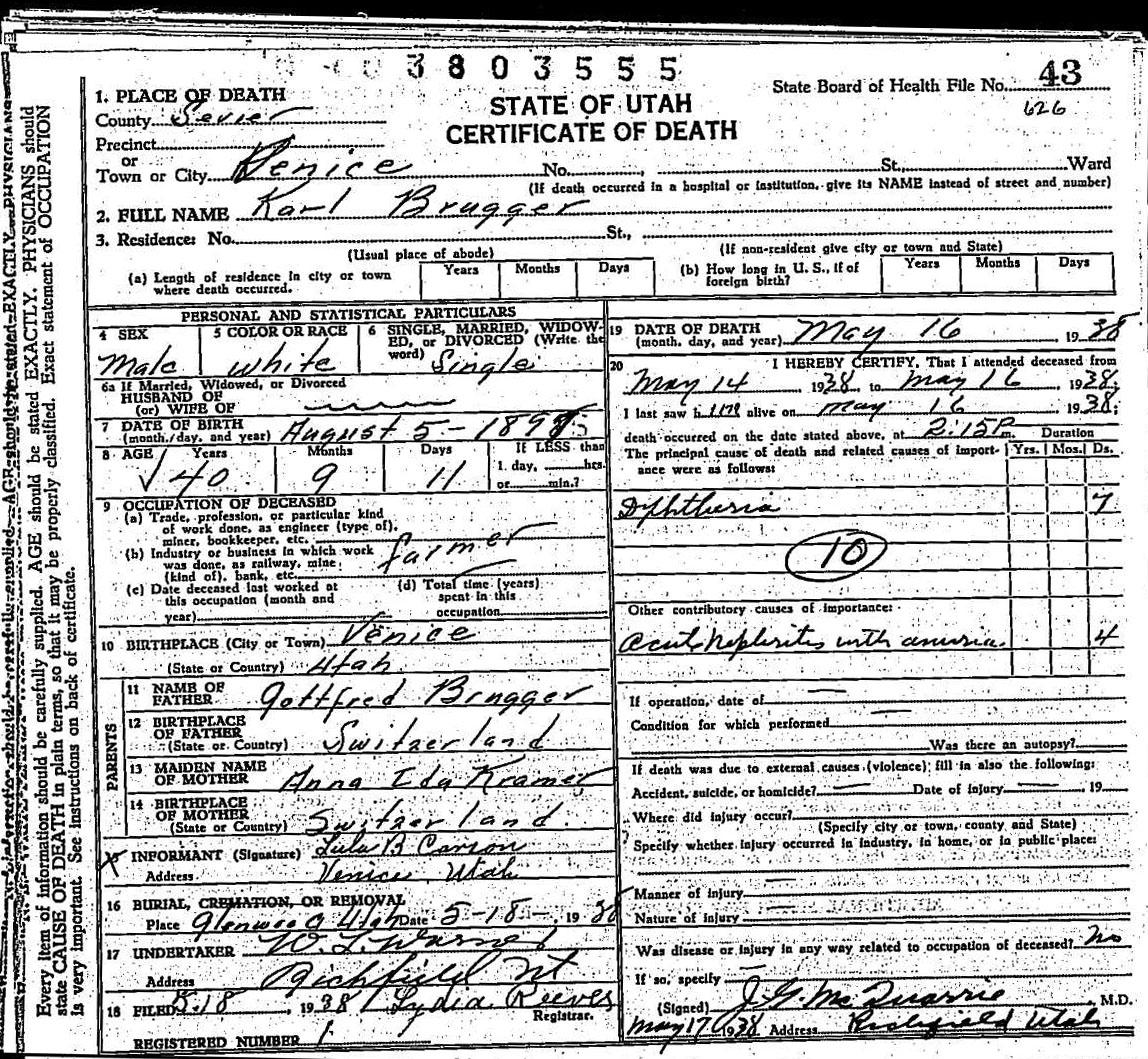 3803555
State Board of Health File No. 43
626
STATE OF UTAH
CERTIFICATE OF DEATH
1. PLACE OF DEATH
County Sevier
Precinct
or
Town or City Venice No. , St., Ward
(If death occurred in a hospital or institution, give its NAME instead of street and number)
2. FULL NAME Karl Brugger
3. Residence: No. St.,
(Usual place of abode) (If non-resident give city or town and State)
(a) Length of residence in city or town where death occurred. Years Months Days
(b) How long in U. S., if of foreign birth? Years Months Days
PERSONAL AND STATISTICAL PARTICULARS
4 SEX Male
5 COLOR OR RACE white
6 SINGLE, MARRIED, WIDOWED, or DIVORCED (Write the word) Single
6a If Married, Widowed, or Divorced
HUSBAND OF
(or) WIFE OF
7 DATE OF BIRTH
(month, day, and year) August 5 - 189
8 AGE Years 40 Months 9 Days 11 If LESS than
1 day, hrs.
or min.?
9 OCCUPATION OF DECEASED
(a) Trade, profession, or particular kind
of work done, as engineer (type of),
miner, bookkeeper, etc. farmer
(b) Industry or business in which work
was done, as railway, mine
(kind of), bank, etc.
(c) Date deceased last worked at
this occupation (month and
year)
(d) Total time (years)
spent in this
occupation
10 BIRTHPLACE (City or Town) Venice
(State or Country) Utah
PARENTS
11 NAME OF
FATHER Gottfred Brugger
12 BIRTHPLACE
OF FATHER
(State or Country) Switzerland
13 MAIDEN NAME
OF MOTHER Anna Ida Kramer
14 BIRTHPLACE
OF MOTHER
(State or Country) Switzerland
INFORMANT (Signature) Lula B Carson
Address Venice, Utah
16 BURIAL, CREMATION, OR REMOVAL
Place Glenwood Utah Date 5-18-, 1938
17 UNDERTAKER W. L. Warner
Address Richfield Ut
18 FILED 5-18, 1938 Lydia Reeves
Registrar.
REGISTERED NUMBER 1
19 DATE OF DEATH
(month, day, and year) May 16 1938
20 I HEREBY CERTIFY, That I attended deceased from
May 14, 1938, to May 16, 1938;
I last saw him alive on May 16 1938;
death occurred on the date stated above, at 2:15 P.m. Duration
The principal cause of death and related causes of importance were as follows: Yrs. Mos. Ds.
Diphtheria 7
10
Other contributory causes of importance:
Acute Nephritis with anuria. 4
If operation, date of
Condition for which performed
Was there an autopsy?
If death was due to external causes (violence) fill in also the following:
Accident, suicide, or homicide? Date of injury 19
Where did injury occur?
(Specify city or town, county and State)
Specify whether injury occurred in industry, in home, or in public place:
Manner of injury
Nature of injury
Was disease or injury in any way related to occupation of deceased? No
If so, specify
(Signed) J. G. McQuarrie, M.D.
May 17, 1938 Address Richfield Utah
Every item of information should be carefully supplied. AGE should be stated EXACTLY. PHYSICIANS should
state CAUSE OF DEATH in plain terms, so that it may be properly classified. Exact statement of OCCUPATION
is very important. See instructions on back of certificate.